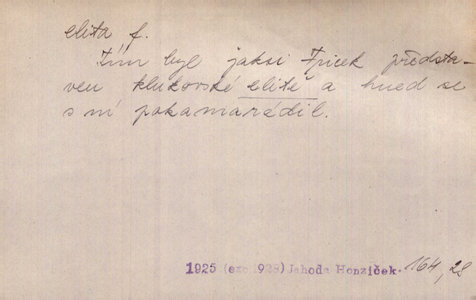 elita f.
Tím byl jaksi Špicek představen
ven klukovské elitě a hned se
s ní pokamarádil.
1925 (exc. 1928) Jahoda Honzíček. 164, 28